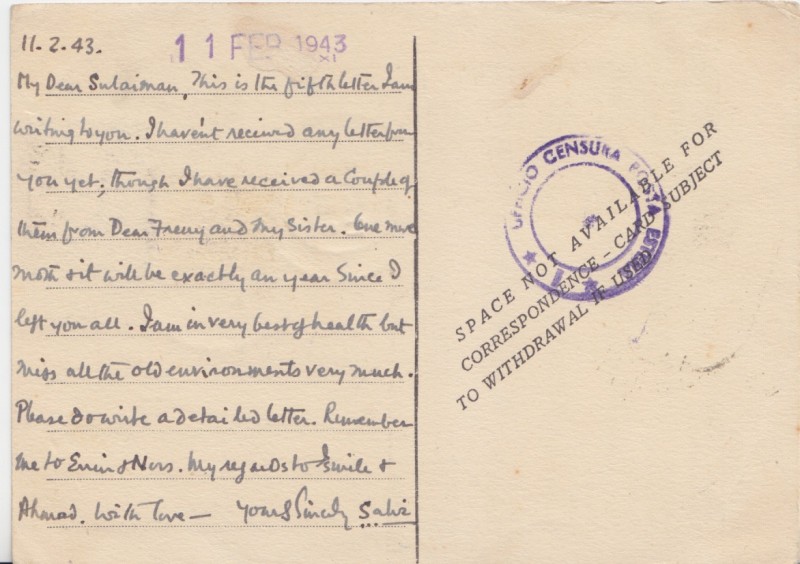 11.2.43.
11 FEB 1943
XI
My Dear Sulaiman, This is the fifth letter I am
writing to you. I haven't received any letter from
you yet; though I have received a couple of
them from Dear Freny and my Sister. One more
month & it will be exactly an year since I
left you all. I am in very best of health but
miss all the old environments very much.
Please do write a detailed letter. Remember
me to & Nors. My regards to Ismile &
Ahmad. With love — Yours Sincely
UFFICIO CENSURA POSTA ESTERA
SPACE NOT AVAILABLE FOR
CORRESPONDENCE – CARD SUBJECT
TO WITHDRAWAL IF USED